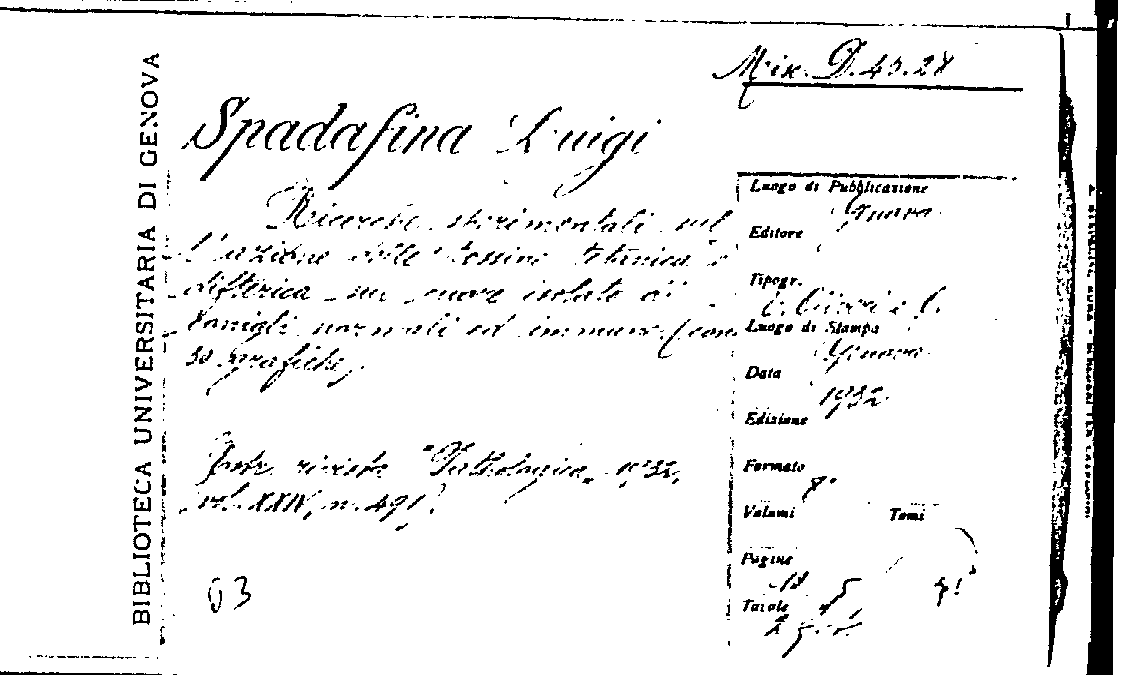 BIBLIOTECA UNIVERSITARIA DI GENOVA
Misc. D.45.28
Spadafina Luigi
Ricerche sperimentali sul
l'azione delle tossine tetanica e
difterica sul cuore isolato di
conigli normali ed immuni (con
30 grafiche)
Estr. rivista "Pathologica" 1932,
vol. XXIV, n. 491.
03
Luogo di Pubblicazione
Genova
Editore
Tipogr.
Luogo di Stampa
Genova
Data
1932
Edizione
Formato
8°
Volumi Tomi
Pagine
Tavole